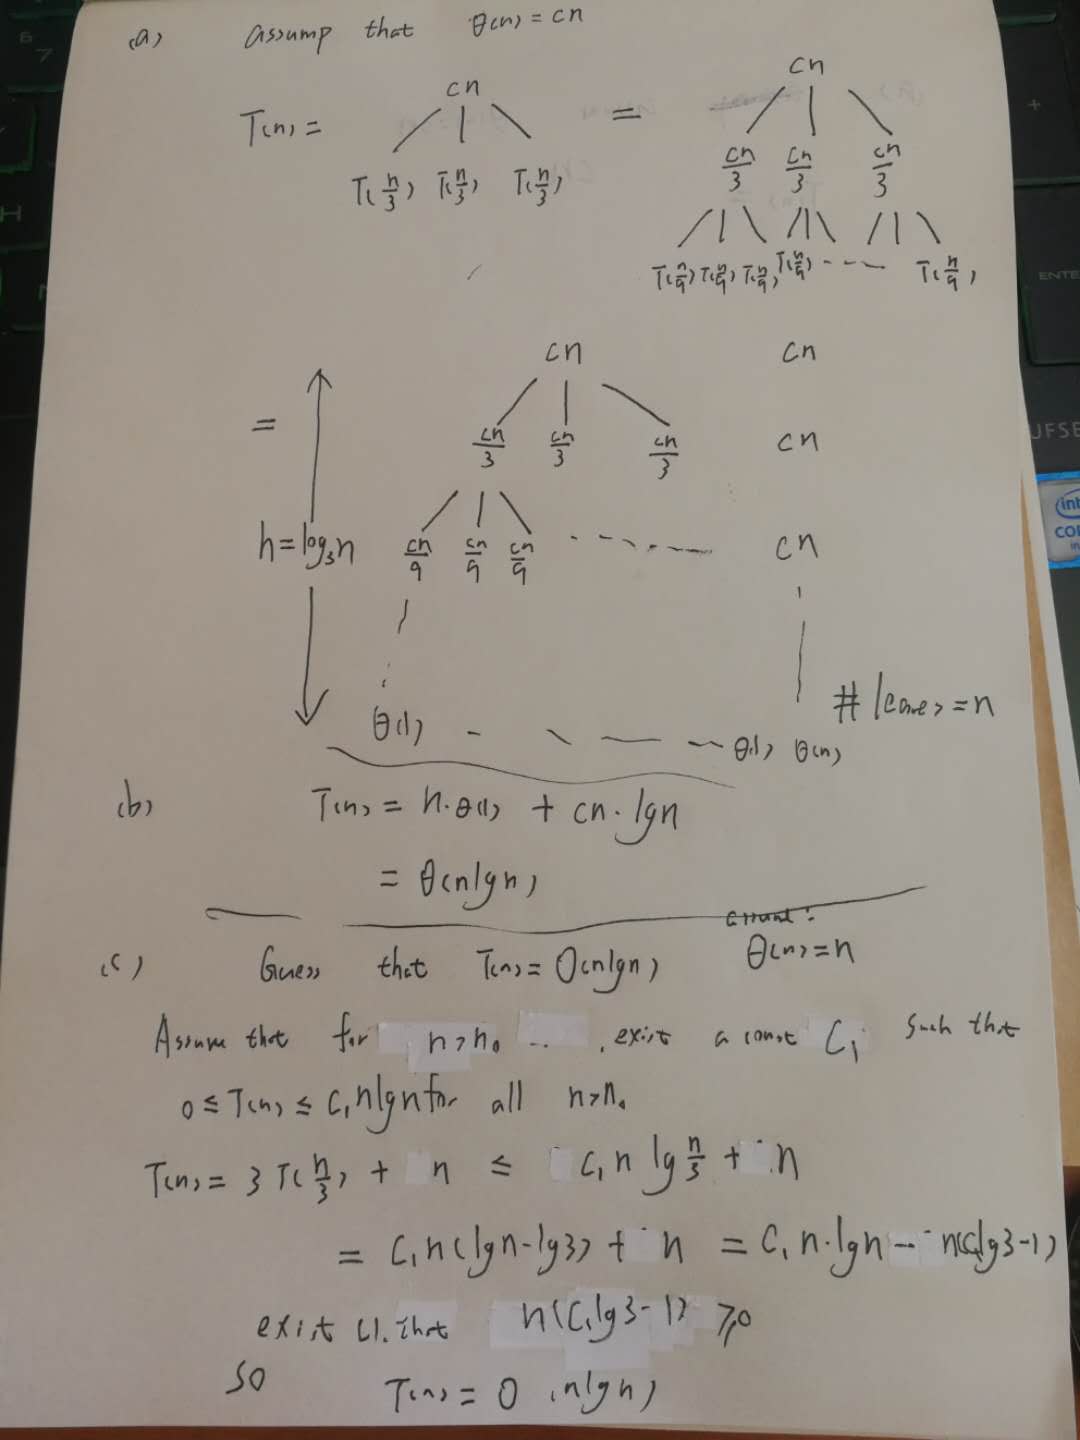 (a) assump that θ(n) = cn
T(n) = cn = cn
T(n/3) T(n/3) T(n/3) cn/3 cn/3 cn/3
T(n/9) T(n/9) T(n/9) T(n/9) --- T(n/9)
= cn cn
cn/3 cn/3 cn/3 cn
h = log₃n cn/9 cn/9 cn/9 ----- cn
# leaves = n
θ(1) - - - - θ(1) θ(n)
(b) T(n) = n·θ(1) + cn·lgn
= θ(nlgn)
(c) Guess that T(n) = O(nlgn) assume: θ(n) = n
Assume that for n>n₀ exist a const C₁ such that
0 ≤ T(n) ≤ C₁nlgn for all n>n₀
T(n) = 3T(n/3) + n ≤ C₁n lg n/3 + n
= C₁n(lgn-lg3) + n = C₁n·lgn - n(C₁lg3-1)
exist C1. that n(C₁lg3-1) ≥0
So T(n) = O(nlgn)
ENTE
UFSE
H